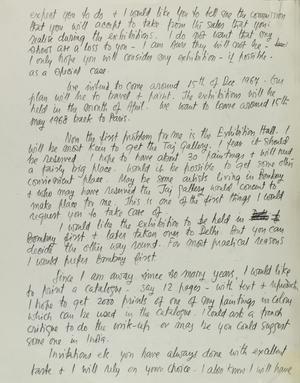 expect you to do & I would like you to tell me the commission
that you will accept to take from the sales that you
realise during the exhibitions. I do not want that my
shows are a loss to you - I am sure they will not be -
I only hope you will consider my exhibition - if possible -
as a special case.
We intend to come around 15th of Dec 1967. Our
plan will be to travel & paint. The exhibitions will be
held in the month of April. We want to leave around 15th
May 1968 back to Paris.
Now the first problem for me is the Exhibition Hall. I
will be most keen to get the Taj Gallery. I fear it should
be reserved. I hope to have about 30 paintings & will need
a fairly big place. Would it be possible to get some other
convenient place. May be some artists living in Bombay
& who may have reserved the Taj Gallery would consent to
make place for me. This is one of the first things I would
request you to take care of.
I would like the exhibition to be held in
Bombay first & later taken over to Delhi. But you can
decide the other way round. For most practical reasons
I would prefer Bombay first.
Since I am away since so many years, I would like
to print a catalogue - say 12 pages - with text & reproductions
I hope to get 2000 prints of one of my paintings in colour
which can be used in the catalogue. I could ask a french
critique to do the write-up or may be you could suggest
some one in India.
Invitations etc you have always done with excellent
taste & I will rely on your choice. I also know I will have